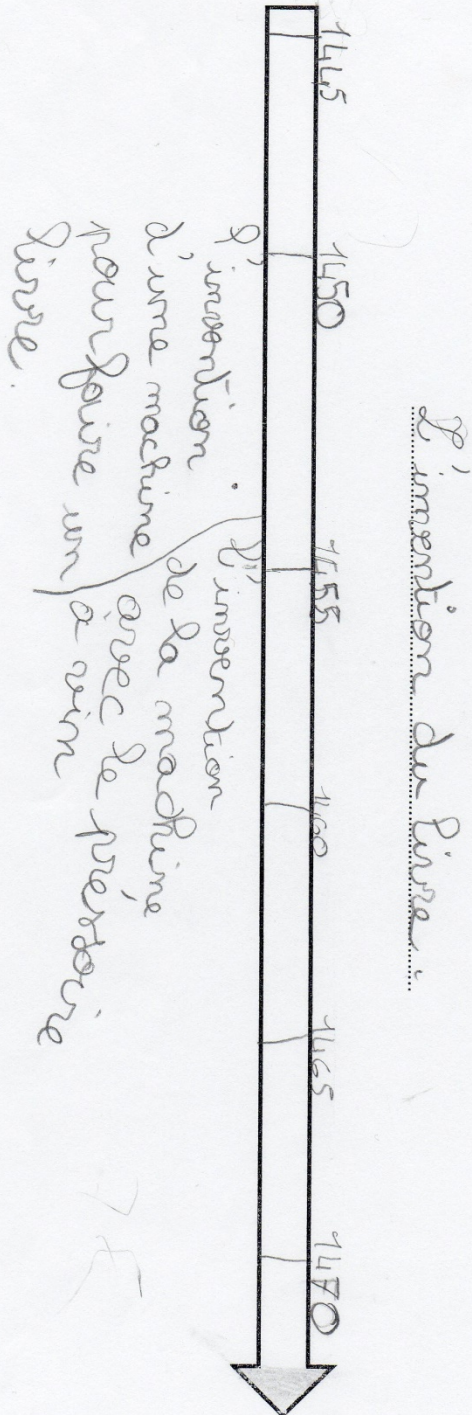 L'invention du livre.
1445 1450 1455 1460 1465 1470
l'invention
d'une machine
pour faire un
livre.
l'invention
de la machine
avec le préssoire
à vin